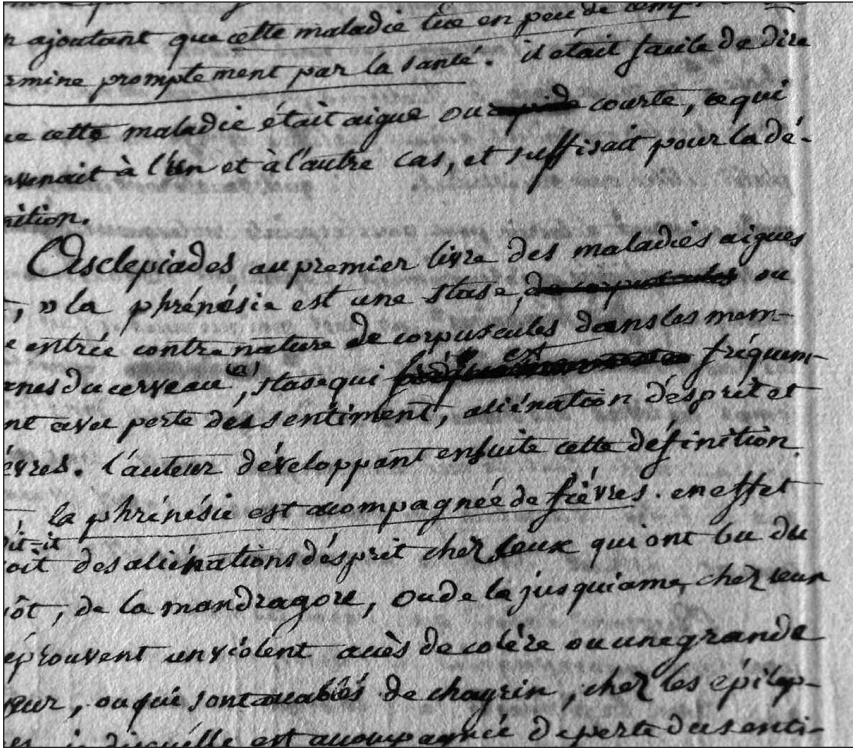 ajoutant que cette maladie tue en peu de temps
rmine promptement par la santé. il était facile de dire
ue cette maladie était aigue ou rapide courte, ce qui
nvenait à l'un et à l'autre cas, et suffisait pour la dé-
nition.
Asclepiades au premier livre des maladies aigues
, " la phrénésie est une stase, de corpuscules ou
e entrée contre nature de corpuscules dans les mem-
anes du cerveau (a), stase qui est fréquem-
nt avec perte des sentiment, aliénation d'esprit et
èvres. l'auteur développant ensuite cette définition.
la phrénésie est acompagnée de fièvres. en effet
dit-il
oit des aliénations d'esprit chez ceux qui ont bu du
vôt, de la mandragore, ou de la jusquiame, chez ceux
éprouvent un violent accès de colère ou une grande
eur, ou qui sont accablés de chagrin, chez les épilep-
es, laquelle est accompagnée de perte du senti-